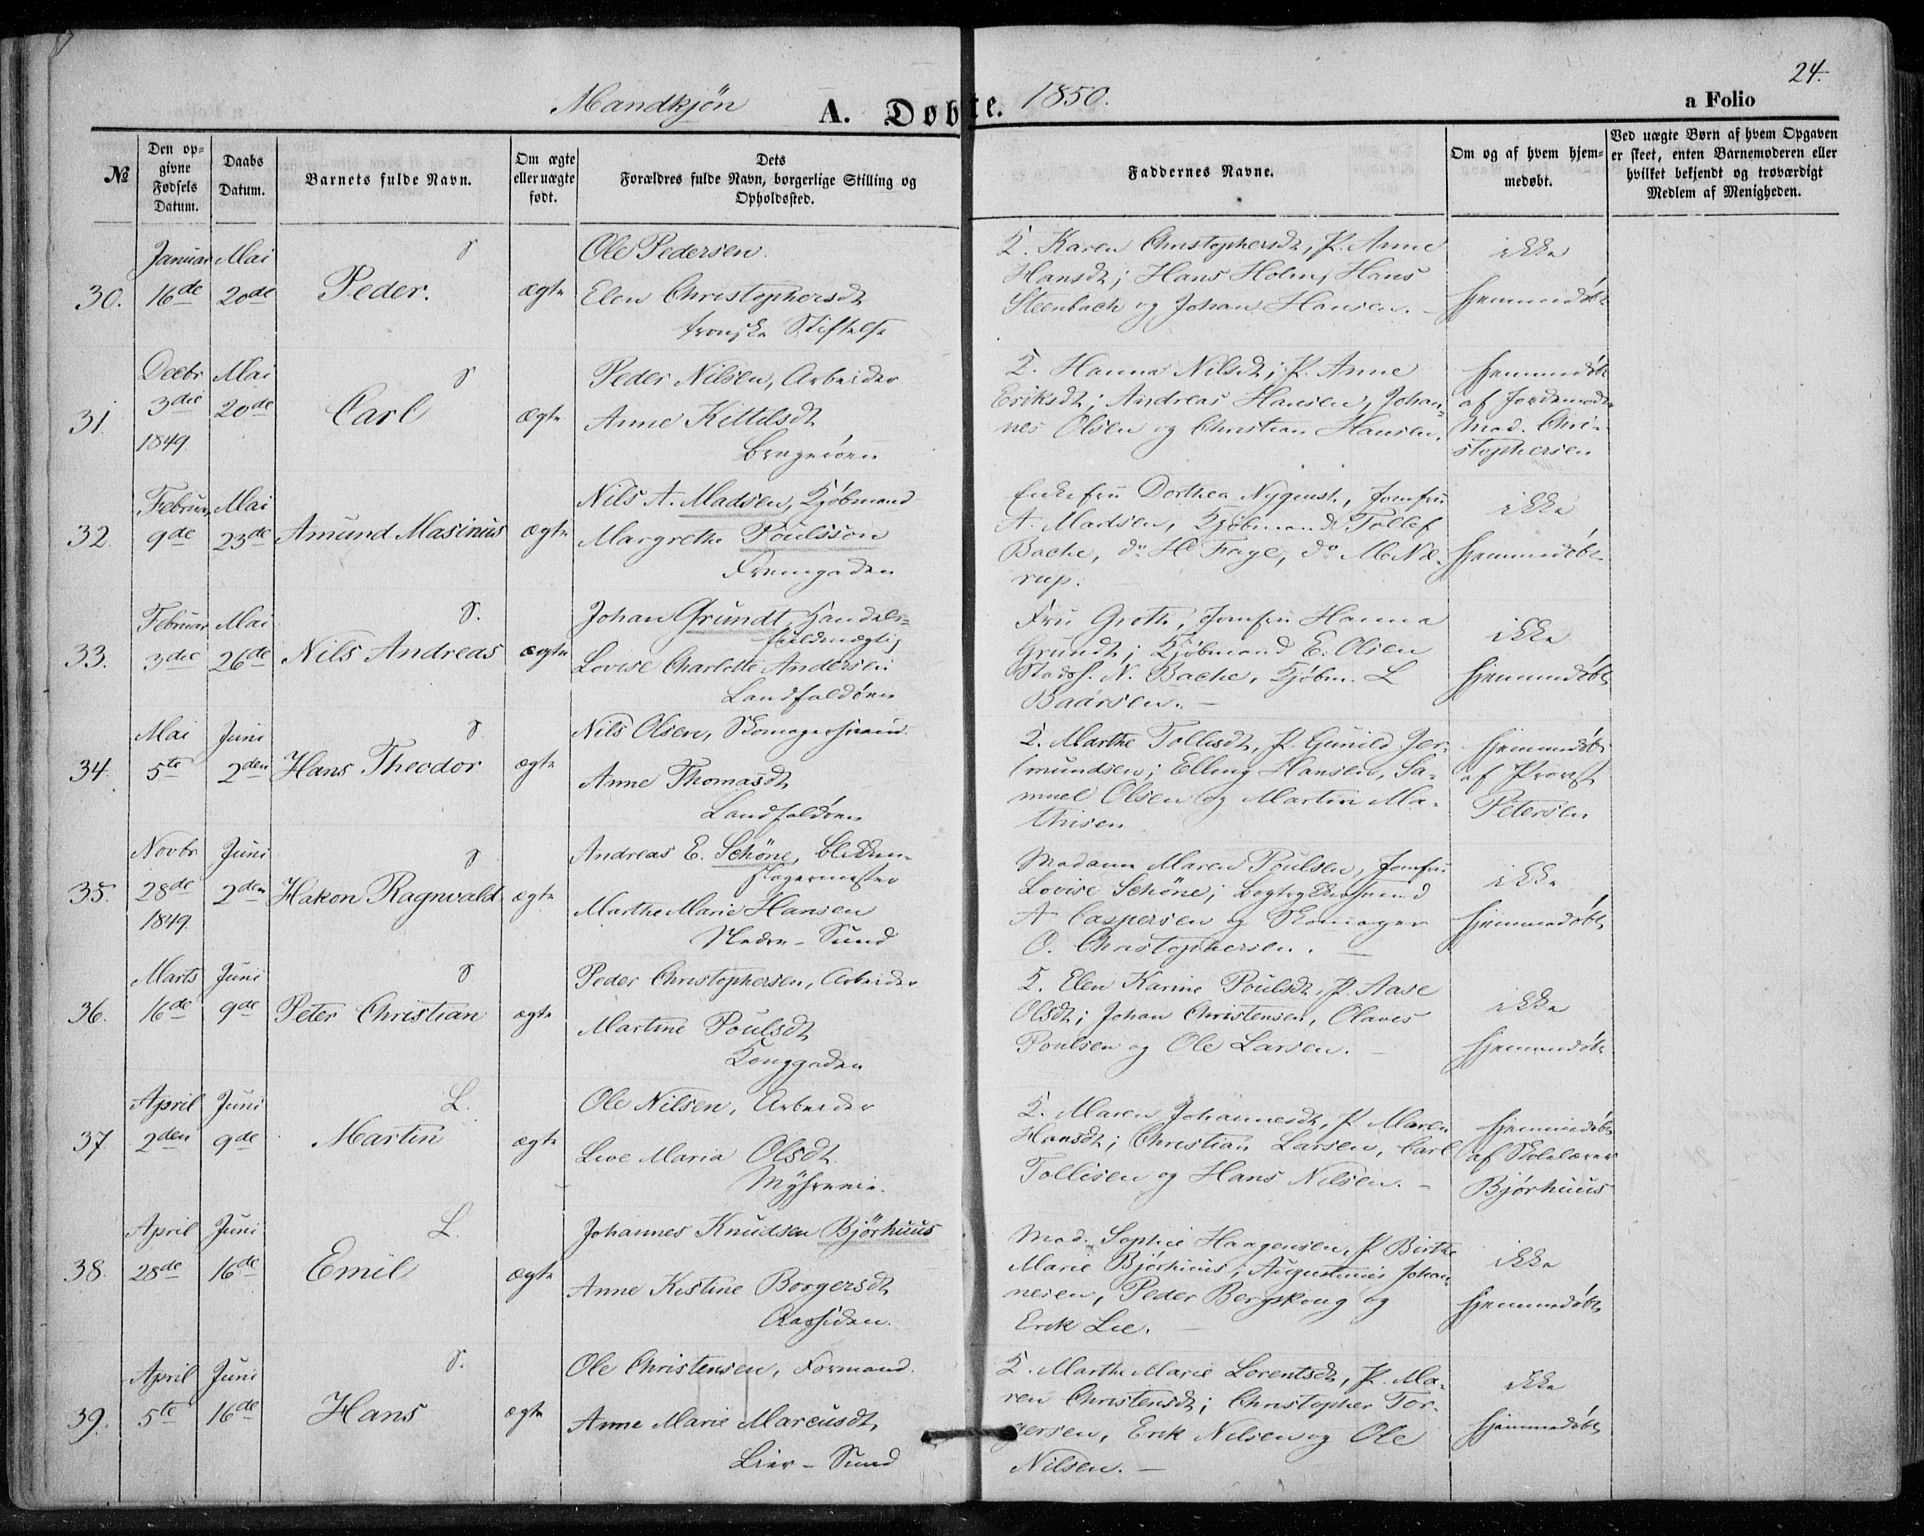 24.
Mandkjön A. Døbte. 1850. a Folio
№
Den op-
givne
Fødsels
Datum.
Daabs
Datum.
Barnets fulde Navn.
Om ægte
eller uægte
født.
Dets
Forældres fulde Navn, borgerlige Stilling og
Opholdssted.
Faddernes Navne.
Om og af hvem hjem-
medøbt.
Ved uægte Børn af hvem Opgaven
er skeet, enten Barnemoderen eller
hvilket bekjendt og troværdigt
Medlem af Menigheden.
30.
Januar
16de
Mai
20de
S
Peder.
ægte
Ole Pedersen.
Elen Christophersdt
Stiftelse
K. Karen Christophersdt, P. Anne
Hansdt; Hans Holm, Hans
Steenbach og Johan Hansen. –
ikke
hjemmedøbt
31.
Decbr
3die
1849.
Mai
20de
S
Carl
ægte
Peder Nilsen, Arbeider
Anne Kittelsdt
Bragerøen
K. Hanna Nilsdt; P. Anne
Eriksdt; Andreas Hansen, Johan-
nes Olsen og Christian Hansen.
hjemmedøbt
af Jordemoder
Mad. Chri-
stophersen
32.
Februar
9de
Mai
23de
Amund Masinius
ægte
Nils A. Madsen, Kjøbmand
Margrethe Poulsson
Enkefru Dorthea Nyquist, Jomfru
A. Madsen, Kjøbmand Tollef
Bache, do H. Frye, do M. Næ-
rup.
ikke
hjemmedøbt
33.
Februar
3die
Mai
26de
S.
Nils Andreas
ægte
Johan Grundt, Handels-
fuldmægtig
Lovise Charlotte Andersen
Landfaldøen
Fru Groth, Jomfru Hanna
Grundt; Kjøbmand E. Olsen
Stadsh. N. Bache, Kjøbm. L
Baarsen. –
ikke
hjemmedøbt
34.
Mai
5te
Juni
2den
S.
Hans Theodor
ægte
Nils Olsen, Skomagersvend.
Anne Thomasdt
Landfaldøen
K. Marthe Tollisdt, P. Gunild Jer-
mundsen; Elling Hansen, Sa-
muel Olsen og Martin Ma-
thisen
hjemmedøbt
af Provst
Petersen
35.
Novbr
28de
1849.
Juni
2den
S
Hakon Ragnvald
ægte
Andreas E. Schöne, Blikken-
slagermester
Marthe Marie Hansen
Nedre – Sund
Madame Maren Poulsen, Jomfru
Lovise Schöne; Bogtrykkersvend
A Caspersen og Skomager
O. Christophersen. –
ikke
hjemmedøbt
36.
Marts
16de
Juni
9de
S
Peter Christian
ægte
Peder Christophersen, Arbeider
Martine Poulsdt
Konggaden
K. Elen Karine Poulsdt, P. Aase
Olsdt; Johan Christensen, Olaves
Poulsen og Ole Larsen. –
ikke
hjemmedøbt
37.
April
2den
Juni
9de
L.
Martin
ægte
Ole Nilsen, Arbeider
Live Maria Olsdt.
K. Maren Johannesdt, P. Maren
Hansdt; Christian Larsen, Carl
Tollisen og Hans Nilsen. –
hjemmedøbt
af Skolelærer
Bjørhuus
38.
April
28de
Juni
16de
L.
Emil
ægte
Johannes Knudsen Bjørhuus
Anne Kistine Borgersdt
Aassiden.
Mad. Sophie Haagensen, P. Birthe
Marie Bjørhuus; Augustinus Johan-
nesen, Peder Borgskoug og
Erik Lie. –
ikke
hjemmedøbt
39.
April
5te
Juni
16de
S.
Hans
ægte
Ole Christensen, Formand.
Anne Marie Marcusdt,
Lier – Sund
K. Marthe Marie Lorentsdt, P. Ma-
ren Christensdt; Christopher Tor-
gersen, Erik Nilsen og Ole
Nilsen. –
ikke
hjemmedøbt